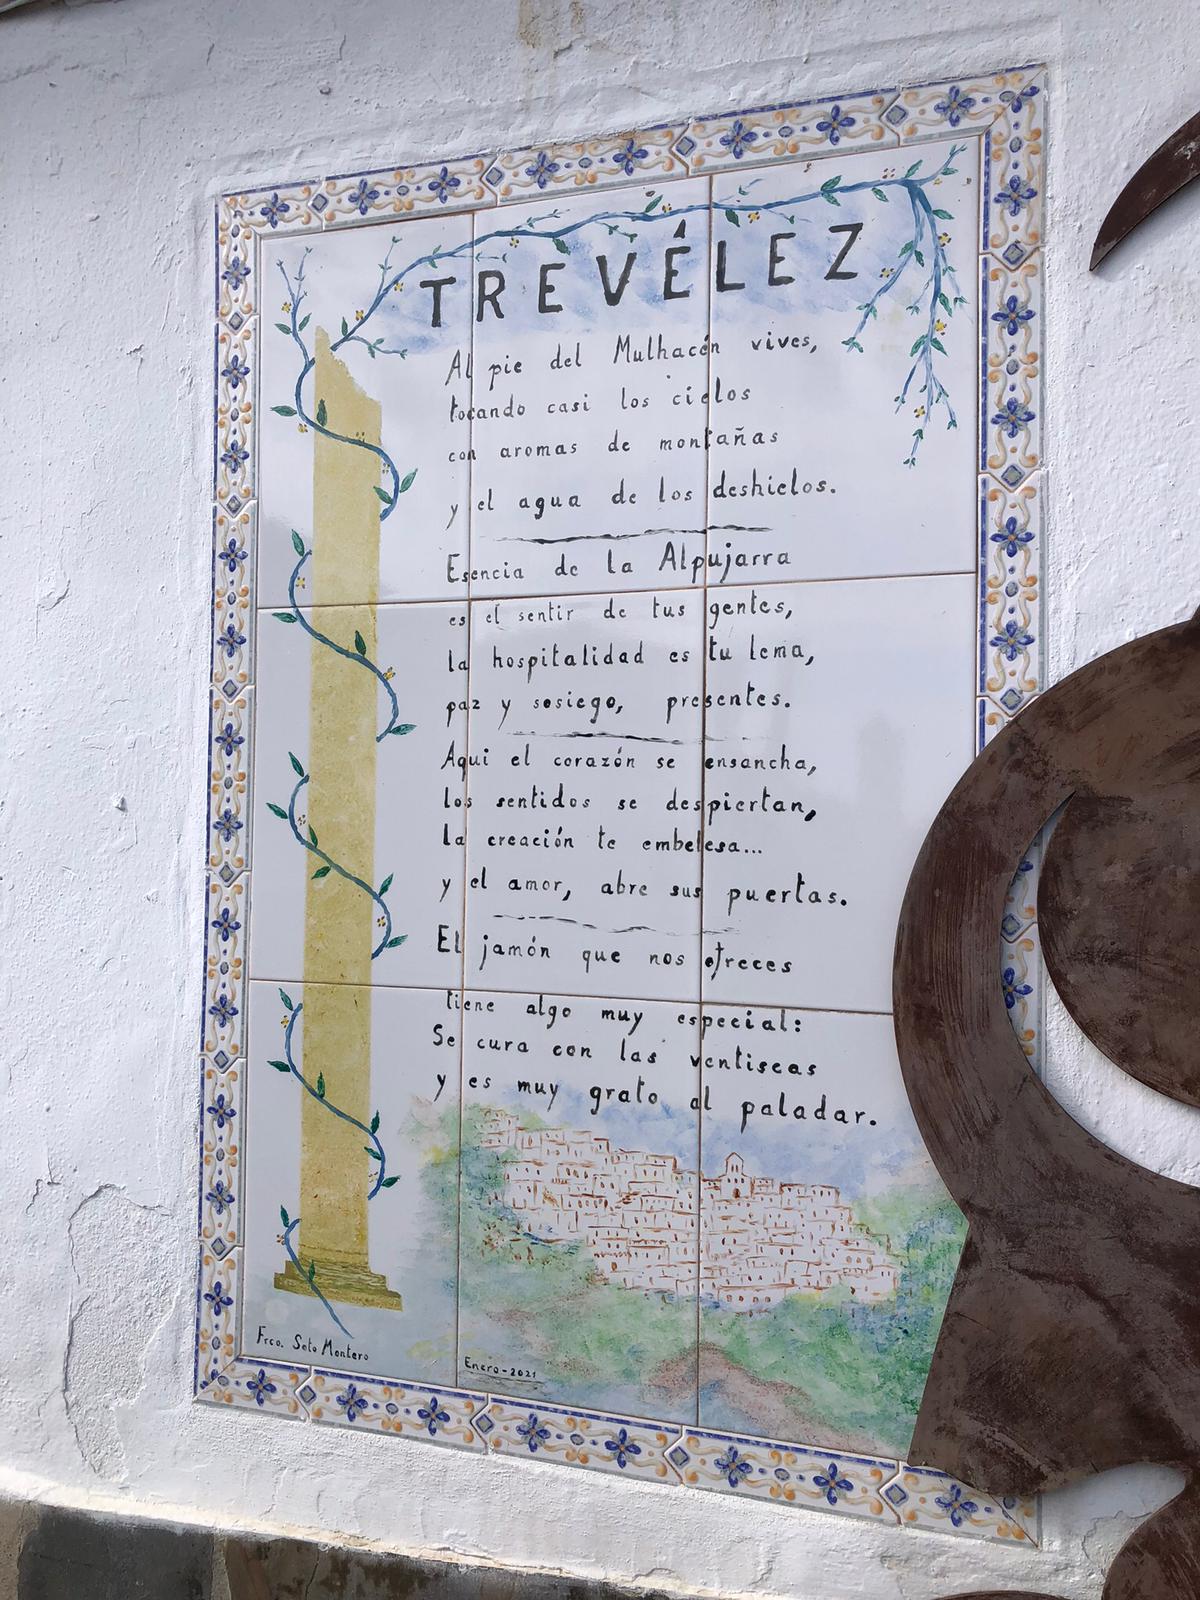 TREVÉLEZ
Al pie del Mulhacén vives,
tocando casi los cielos
con aromas de montañas
y el agua de los deshielos.
Esencia de la Alpujarra
es el sentir de tus gentes,
la hospitalidad es tu lema,
paz y sosiego, presentes.
Aqui el corazón se ensancha,
los sentidos se despiertan,
la creación te embelesa...
y el amor, abre sus puertas.
El jamón que nos ofreces
tiene algo muy especial:
Se cura con las ventiscas
y es muy grato al paladar.
Frco. Soto Montero
Enero-2021